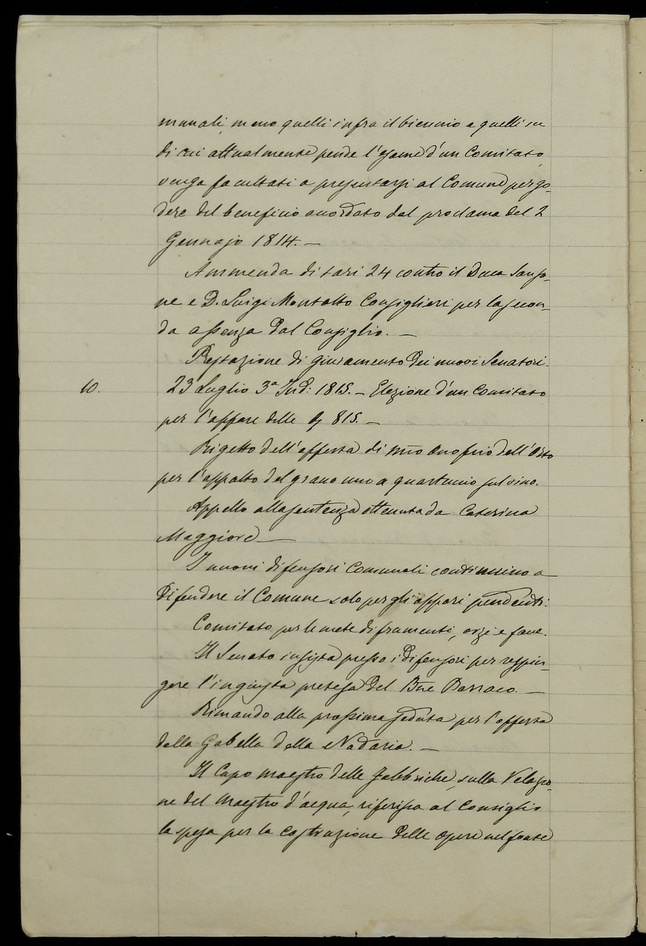 munali, meno quelli infra il biennio e quelli su
di cui attualmente pende l'esame d'un Comitato,
venga facultati a presentarsi al Comune per go-
dere del beneficio accordato dal proclama del 2
Gennajo 1814. —
Ammenda di tarì 24 contro il Duca Sanso-
ne e D. Luigi Montalto Consiglieri per la secon-
da assenza dal Consiglio. —
Prestazione di giuramento dei nuovi Senatori.
10. 23 Luglio 3ª Ind: 1815. — Elezione d'un Comitato
per l'affare delle 815. —
Rigetto dell'offerta di mro Onofrio dell'Orto
per l'appalto del grano uno a quartuccio sul vino.
Appello alla sentenza ottenuta da Caterina
Maggiore —
I nuovi difensori Comunali continuino a
difendere il Comune solo per gli affari pendenti.
Comitato per le mete di frumenti, orzi e fave.
Il Senato insista presso i difensori per respin-
gere l'ingiusta pretesa del Bne —
Rimando alla prossima seduta per l'offerta
della Gabella della Nadaria. —
Il Capo maestro delle fabbriche, sulla Relazio-
ne del maestro d'acqua, riferisa al Consiglio
la spesa per la costruzione delle opere nel fonte